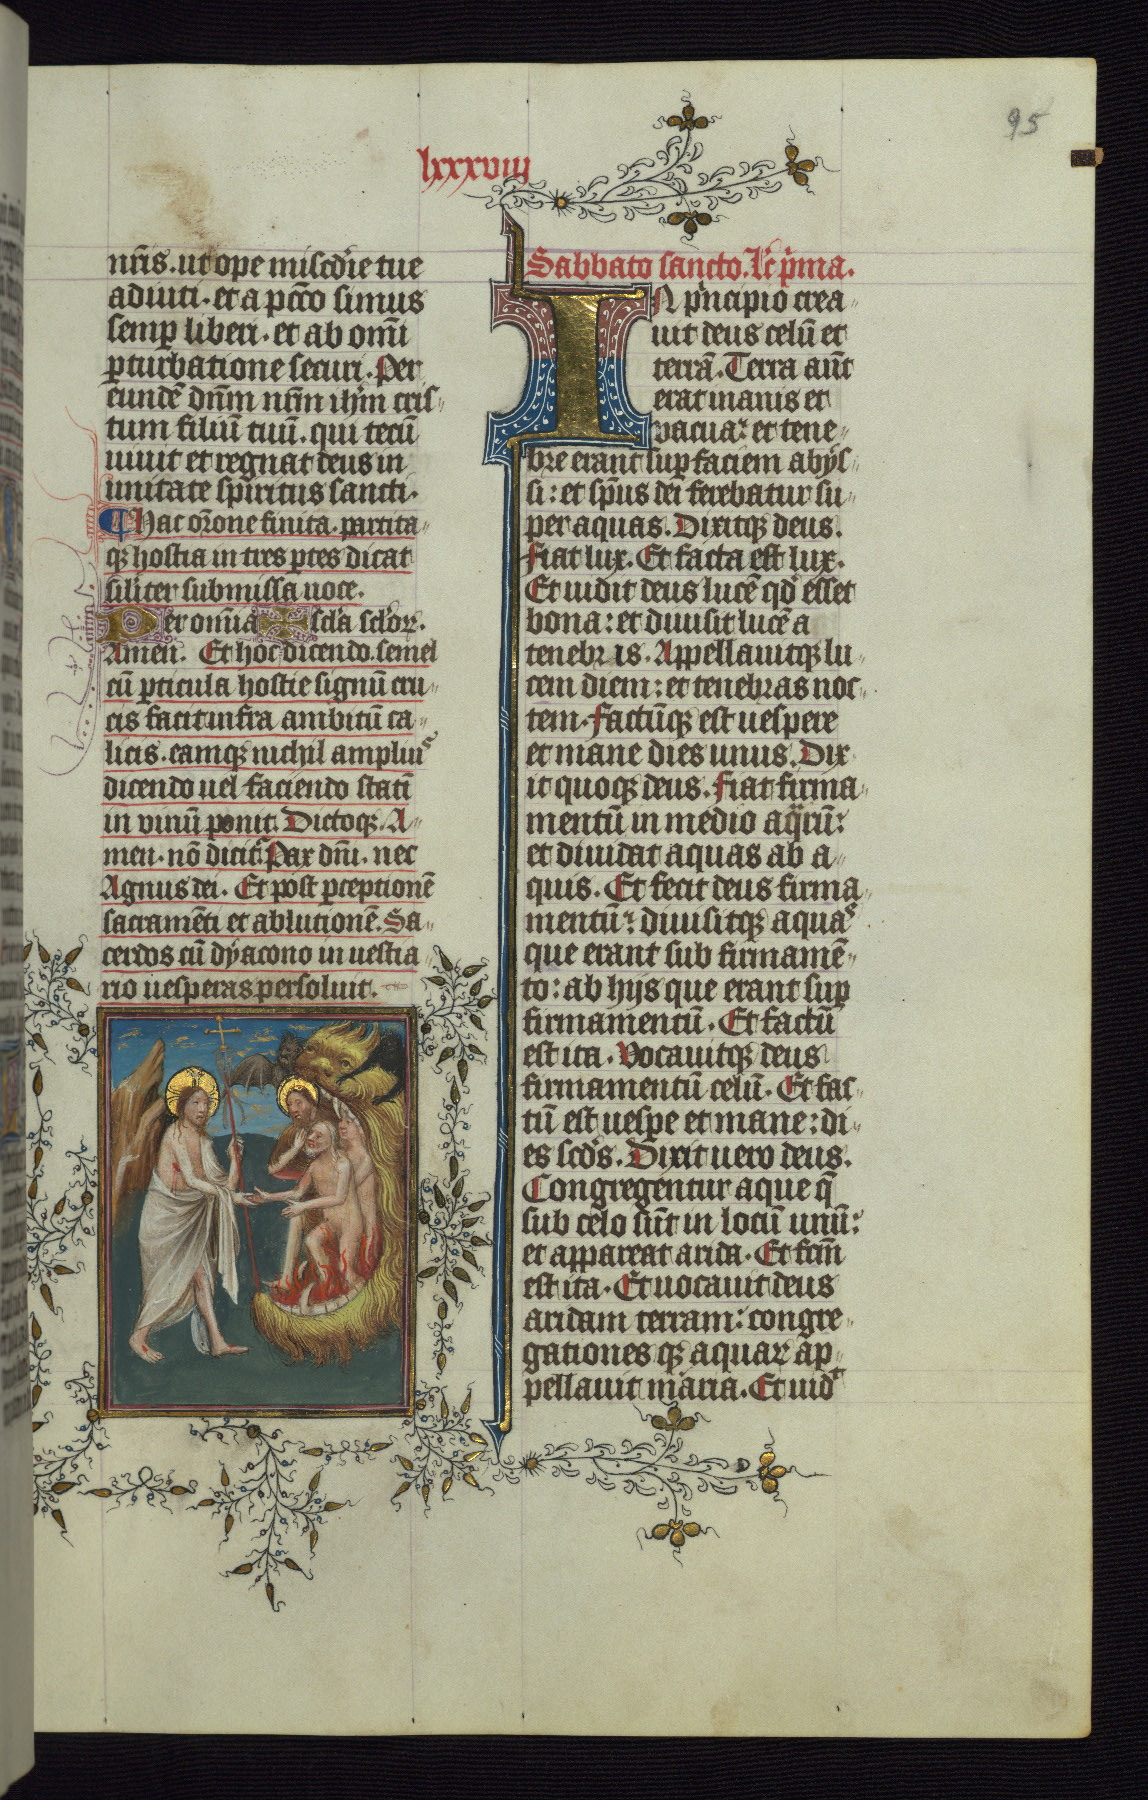 95
lxxxviij
nr̄is. ut ope miscd̕ie tue
adiuti. et a pcc̄o simus
semꝑ liberi. et ab om̄i
ꝑturbatione securi. Per
eundē dn̄m nr̄m ih̄m cris-
tum filiū tuū. qui tecū
uiuit et regnat deus in
unitate spiritus sancti.
¶ Hac or̄one finita. partita-
qꝫ hostia in tres ꝑtes dicat
sil̕iter submissa uoce.
Per om̄ia scl̕a scl̕oꝝ.
Amen. Et hoc dicendo. semel
cū ꝑticula hostie signū cru-
cis facit infra ambitū ca-
licis. eamqꝫ nichil amplius
dicendo uel faciendo statī
in vinū ponit. Dictoqꝫ. A-
men. nō dicit᷑ Pax dn̄i. nec
Agnus dei. Et post ꝑceptionē
sacramēti et ablutionē. Sa-
cerdos cū dẏacono in uestia-
rio uesperas persoluit.
Sabbato sancto. Lc̄ p̕ma.
IN p̕ncipio crea-
uit deus celū et
terrā. Terra aūt
erat inanis et
vacua: et tene-
bre erant suꝑ faciem abẏs-
si: et sp̄us dei ferebatur su-
per aquas. Dixitqꝫ deus.
Fiat lux. Et facta est lux.
Et uidit deus lucē qd̕ esset
bona: et diuisit lucē a
tenebris. Appellauitqꝫ lu
cem diem: et tenebras noc-
tem. Factūqꝫ est uespere
et mane dies unus. Dix-
it quoqꝫ deus. Fiat firma-
mentū in medio aquaꝝ:
et diuidat aquas ab a-
quis. Et fecit deus firma-
mentū: diuisitqꝫ aquas
que erant sub firmamē-
to: ab hijs que erant suꝑ
firmamentū. Et factū
est ita. Vocauitqꝫ deus
firmamentū celū. Et fac-
tū est uesꝑe et mane: di-
es scd̕s. Dixit uero deus.
Congregentur aque q̄
sub celo sūt in locū unū:
et appareat arida. Et fc̄m
est ita. Et uocauit deus
aridam terram: congre-
gationes qꝫ aquaꝝ ap-
pellauit maria. Et uid̕